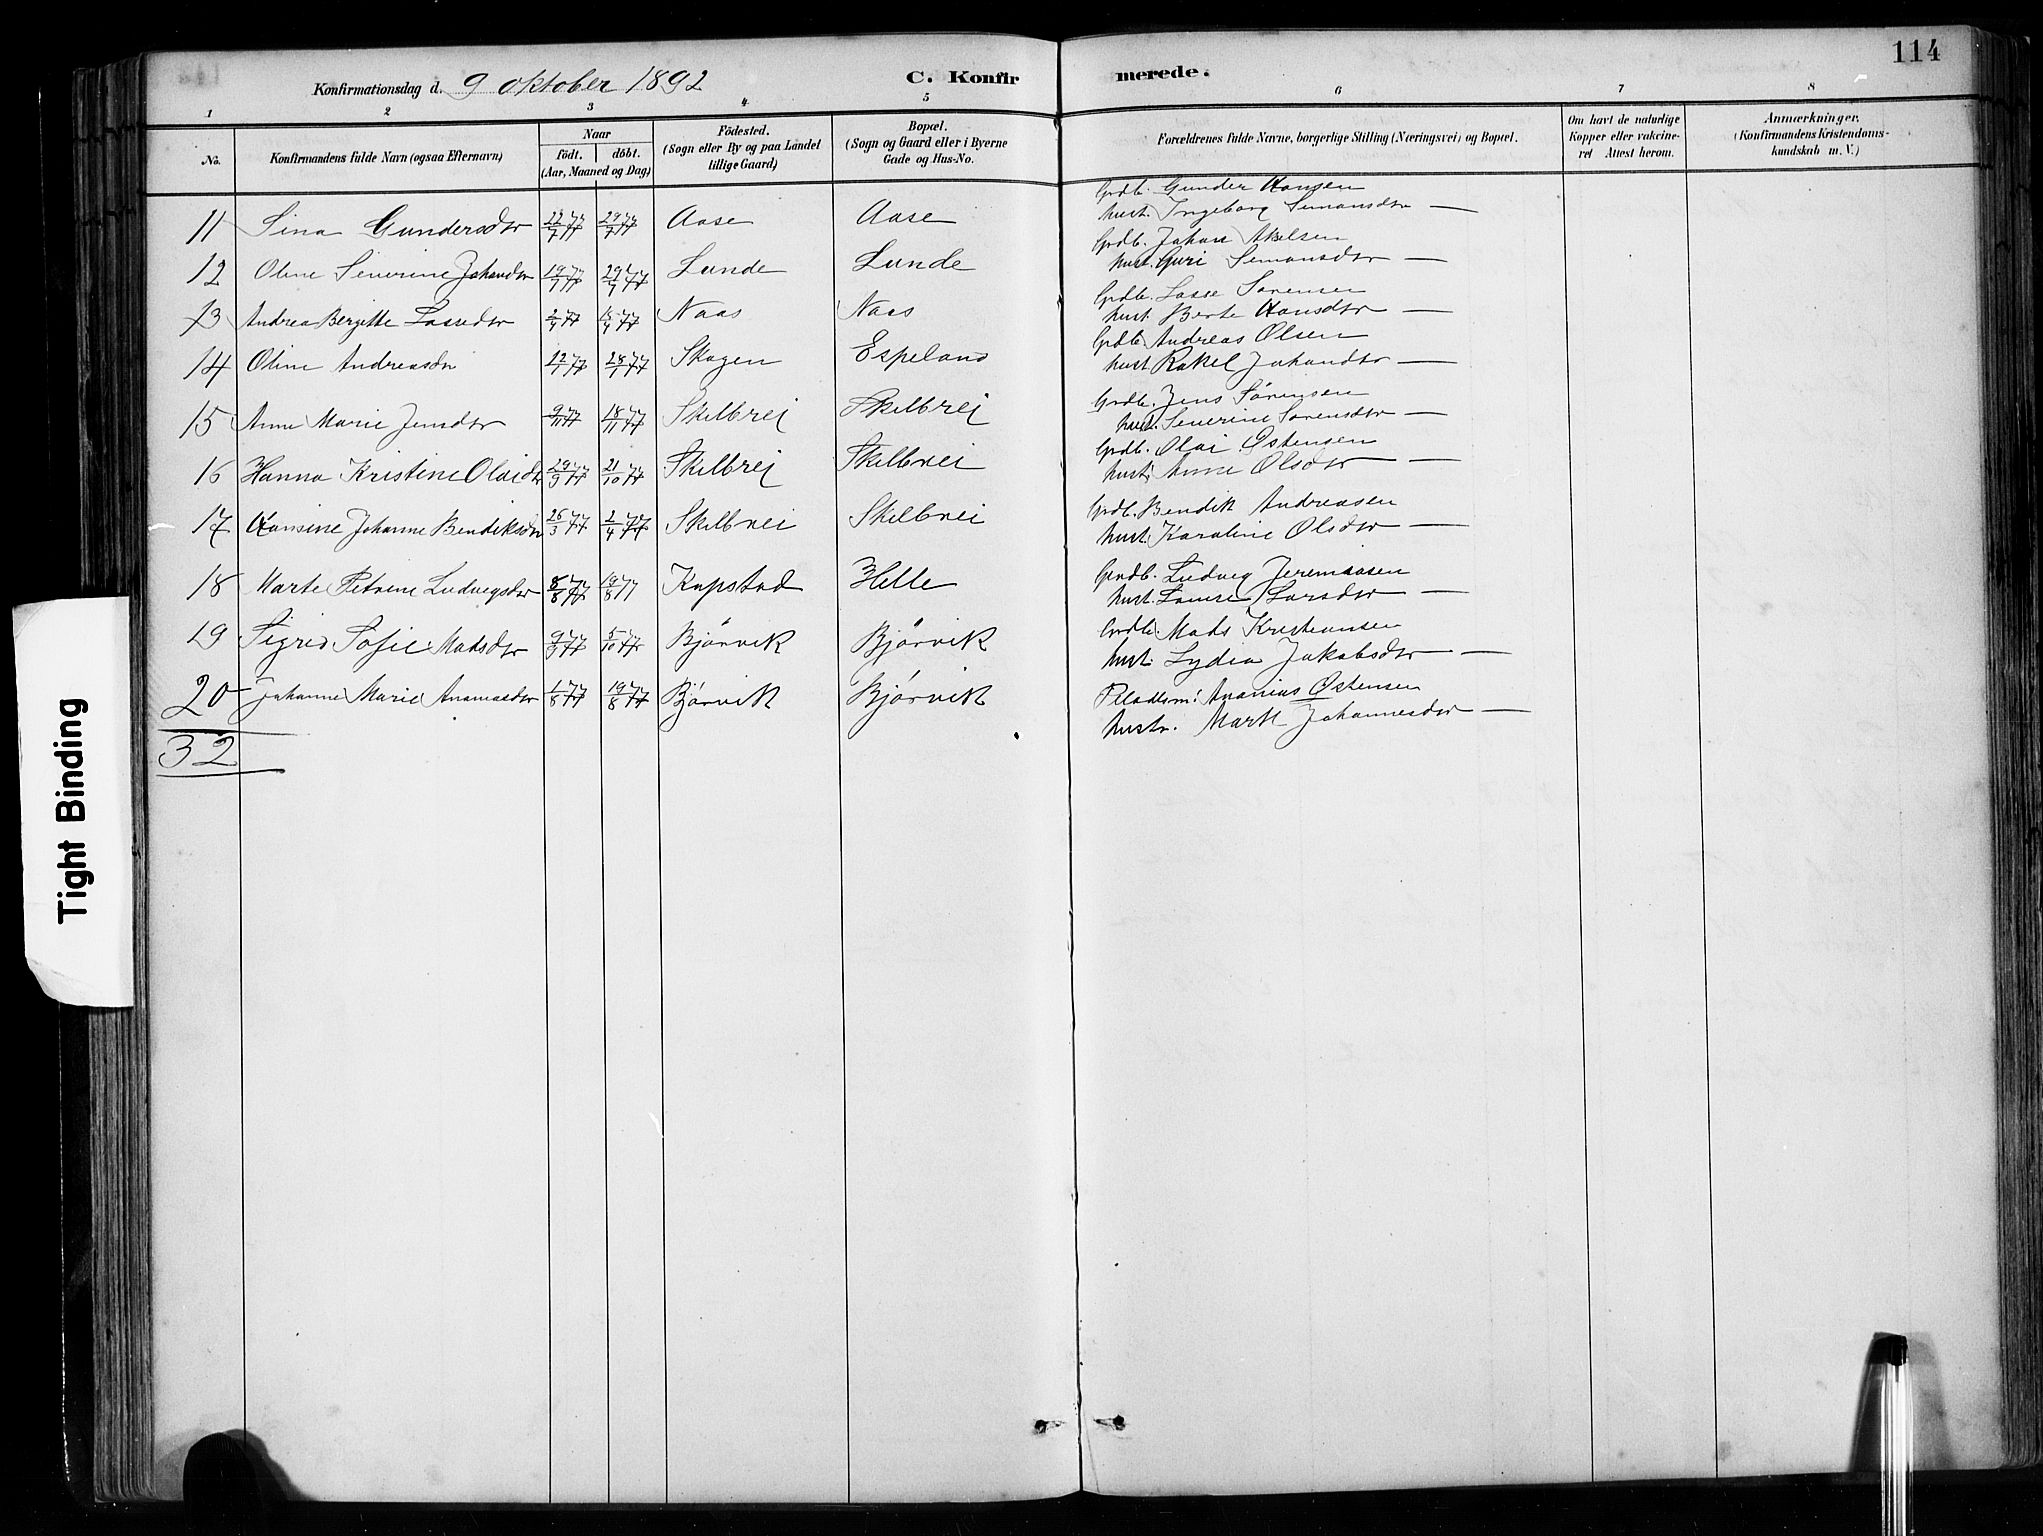 114
Konfirmationsdag d. 9 oktober 1892 C. Konfirmerede.
1 2 3 4 5 6 7 8
No. Konfirmandens fulde Navn (ogsaa Efternavn) Naar födt. döbt. (Aar, Maaned og Dag) Födested. (Sogn eller By og paa Landet tillige Gaard) Bopæl. (Sogn og Gaard eller i Byerne Gade og Hus-No. Forældrenes fulde Navne, borgerlige Stilling (Næringsvei) og Bopæl. Om havt de naturlige Kopper eller vakcineret Attest herom. Anmærkninger. (Konfirmandens Kristendomskundskab m. V.)
11 Sina Gundersdtr 29/7 77 Aase Aase Grdb. Gunder Hansen
hust. Ingeborg Simonsdtr —
12 Oline Severine Johansdtr 19/7 77 29/7 77 Lunde Lunde Grdb. Johan Akelsen
hust. Guri Simonsdtr —
13 Andrea Bergitte Lassedtr 2/4 77 15/4 77 Naas Naas Grdb. Lasse Sørensen
hust. Berte Hansdtr —
14 Oline Andreasdtr 12/1 77 28/1 77 Skogen Espeland Grdb. Andreas Olsen
hust Rakel Johansdtr —
15 Anne Marie Jensdtr 9/11 77 18/11 77 Skelbrei Skelbrei Grdb. Jens Sörensen
hust. Severine Sörensdtr —
16 Hanna Kristine Olaidtr 29/9 77 21/10 77 Skelbrei Skelbrei Grdb. Olai Östensen
hust. Anne Olsdtr —
17 Hansine Johanne Bendiksdtr 26/3 77 2/4 77 Skelbrei Skelbrei Grdb. Bendik Andreasen
hust. Karoline Olsdtr —
18 Marte Petrine Ludvigsdtr 8/8 77 19/8 77 Kapstad Helle Grdb. Ludvig Jeremiasen
hust. Lovise Larsdtr —
19 Sigrid Sofie Madsdtr 9/9 77 5/10 77 Björvik Björvik Grdb. Mads Kristiansen
hust. Lydia Jakobsdtr —
20 Johanne Marie Ananiasdtr 1/8 77 19/8 77 Björvik Björvik Pladsm: Ananias Östensen
hustr. Marte Johannesdtr —
32
Tight Binding